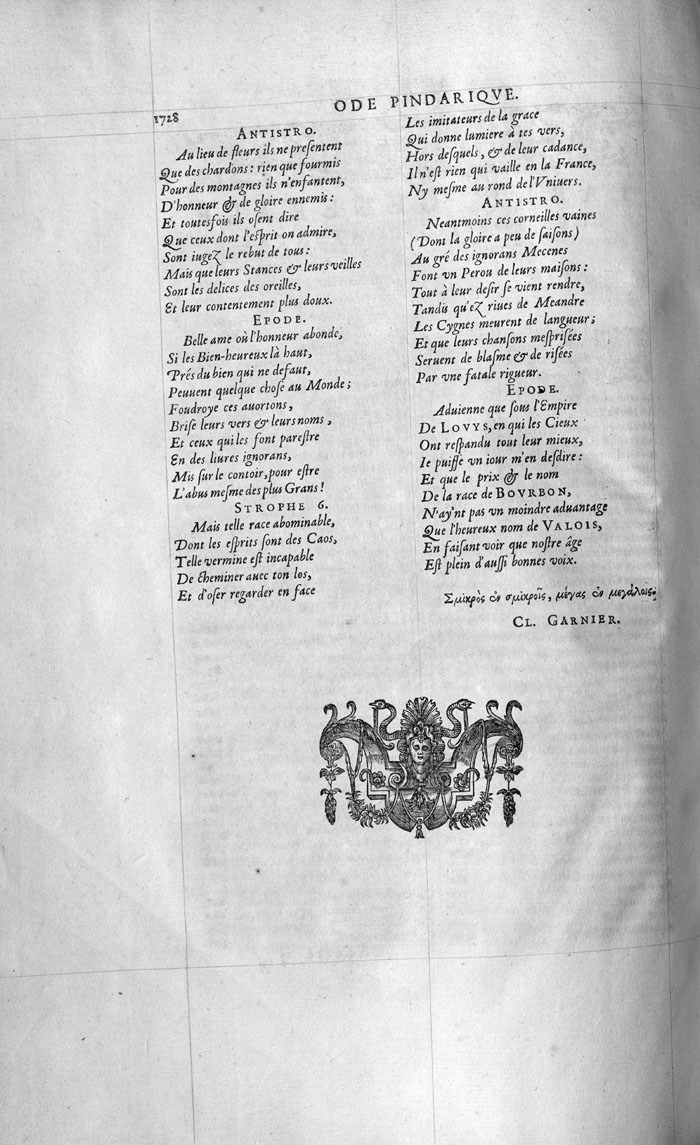 1728
ODE PINDARIQVE.
ANTISTRO.
Au lieu de fleurs ils ne presentent
Que des chardons: rien que fourmis
Pour des montagnes ils n'enfantent,
D'honneur & de gloire ennemis:
Et toutesfois ils osent dire
Que ceux dont l'esprit on admire,
Sont iugez le rebut de tous:
Mais que leurs Stances & leurs veilles
Sont les delices des oreilles,
Et leur contentement plus doux.
EPODE.
Belle ame où l'honneur abonde,
Si les Bien-heureux là haut,
Prés du bien qui ne defaut,
Peuuent quelque chose au Monde;
Foudroye ces auortons,
Brise leurs vers & leurs noms,
Et ceux qui les font parestre
En des liures ignorans,
Mis sur le contoir, pour estre
L'abus mesme des plus Grans!
STROPHE 6.
Mais telle race abominable,
Dont les esprits sont des Caos,
Telle vermine est incapable
De cheminer auec ton los,
Et d'oser regarder en face
Les imitateurs de la grace
Qui donne lumiere à tes vers,
Hors desquels, & de leur cadance,
Il n'est rien qui vaille en la France,
Ny mesme au rond de l'Vniuers.
ANTISTRO.
Neantmoins ces corneilles vaines
(Dont la gloire a peu de saisons)
Au gré des ignorans Mecenes
Font vn Perou de leurs maisons:
Tout à leur desir se vient rendre,
Tandis qu'ez riues de Meandre
Les Cygnes meurent de langueur;
Et que leurs chansons mesprisées
Seruent de blasme & de risées
Par vne fatale rigueur.
EPODE.
Aduienne que sous l'Empire
De LOVYS, en qui les Cieux
Ont respandu tout leur mieux,
Ie puisse vn iour m'en desdire:
Et que le prix & le nom
De la race de BOVRBON,
N'ay'nt pas vn moindre aduantage
Que l'heureux nom de VALOIS,
En faisant voir que nostre âge
Est plein d'aussi bonnes voix.
Σμικρὸς ἐν σμικροῖς, μέγας ἐν μεγάλοις.
CL. GARNIER.